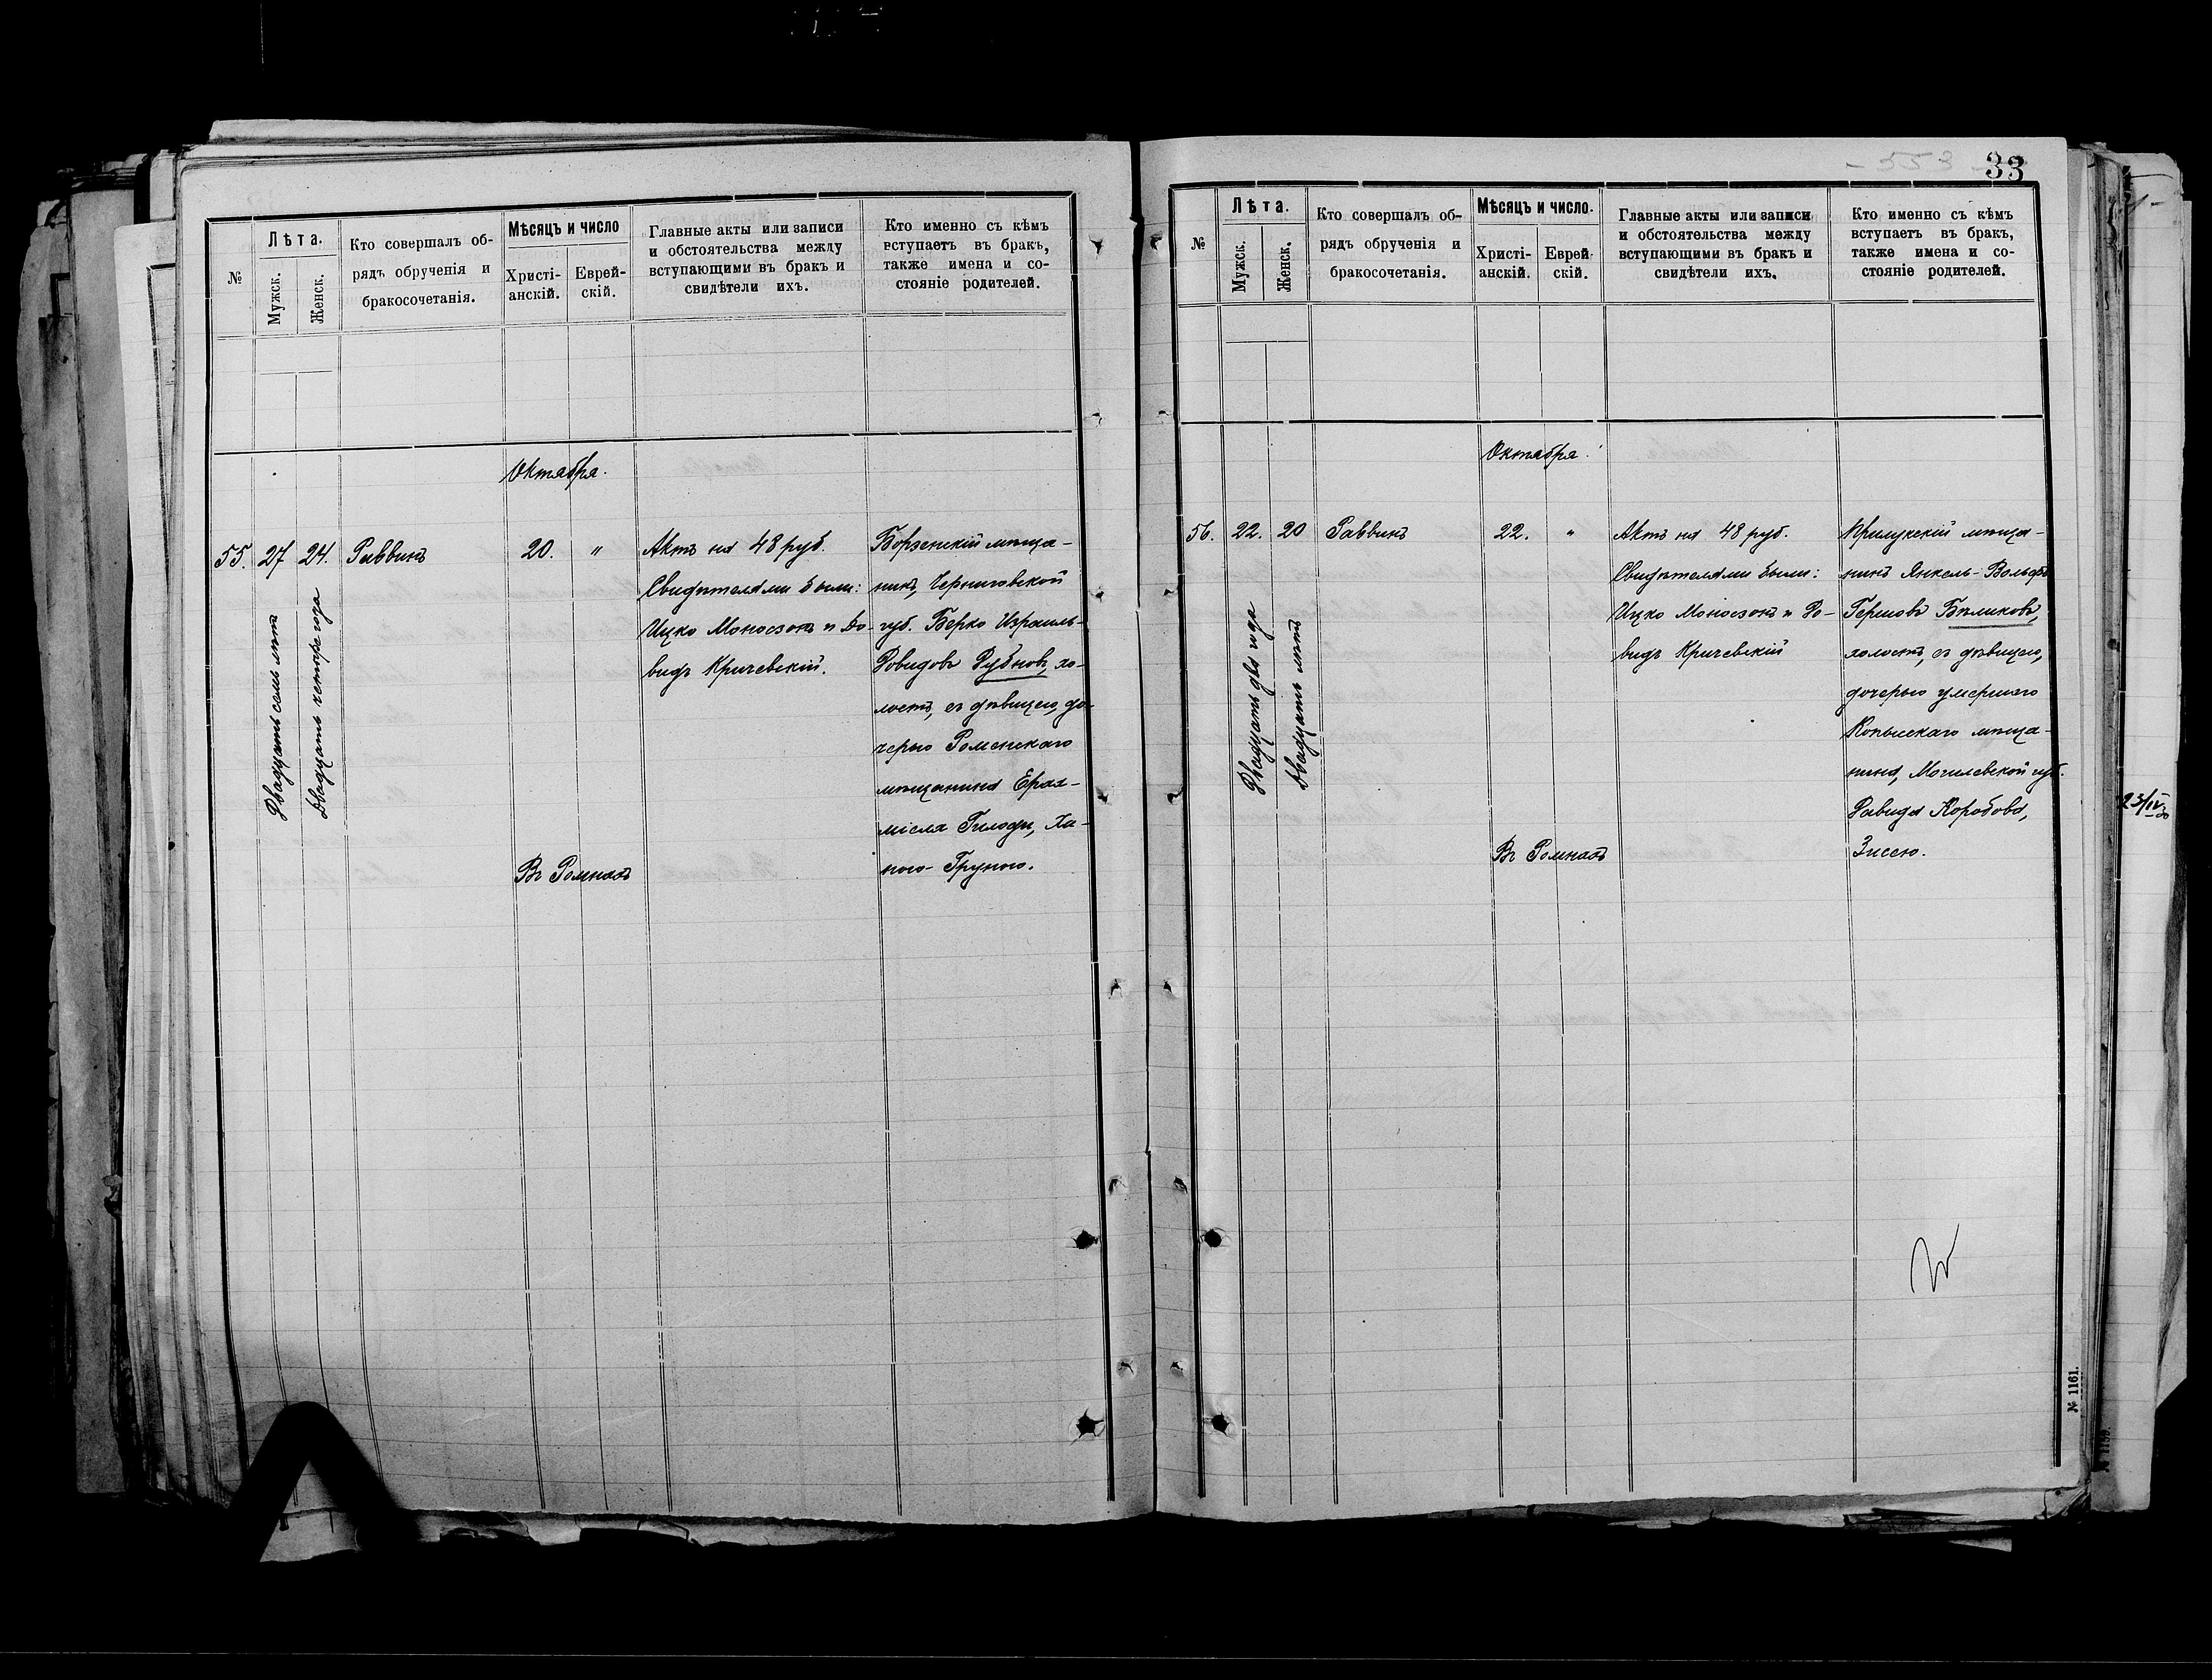 №
Лѣта.
Мужск.
Женск.
Кто совершалъ об-
рядъ обрученія и
бракосочетанія.
Мѣсяцъ и число
Христі-
анскій.
Еврей-
скій.
Главные акты или записи
и обстоятельства между
вступающими въ бракъ и
свидѣтели ихъ.
Кто именно съ кѣмъ
вступаетъ въ бракъ,
также имена и со-
стояніе родителей.
Октября.
55.
27
24.
Двадцать семь лѣтъ
Двадцать четыре года
Раввинъ
20.
"
Въ Ромнахъ
Актъ на 48 руб.
Свидѣтелями были:
Ицко Моносзонъ и Да-
видъ Кричевскій.
Борзенскій мѣща-
нинъ, Черниговской
губ. Берко Израиль-
Давидовъ Рубновъ, хо-
лостъ, съ дѣвицею, до-
черью Роменскаго
мѣщанина
Ха-
ною-Груною.
33
553
№
Лѣта.
Мужск.
Женск.
Кто совершалъ об-
рядъ обрученія и
бракосочетанія.
Мѣсяцъ и число.
Христі-
анскій.
Еврей-
скій.
Главные акты или записи
и обстоятельства между
вступающими въ бракъ и
свидѣтели ихъ.
Кто именно съ кѣмъ
вступаетъ въ бракъ,
также имена и со-
стояніе родителей.
Октября.
56.
22.
20
Двадцать два года
Двадцать лѣтъ
Раввинъ
22.
"
Въ Ромнахъ
Актъ на 48 руб.
Свидѣтелями были:
Ицко Моносзонъ и Да-
видъ Кричевскій
Прилукскій мѣща-
нинъ Янкель-Вольфъ
Гершовъ Бѣликовъ,
холостъ, съ дѣвицею,
дочерью умершаго
Копысскаго мѣща-
нина, Могилевской губ.
Давида Коробова,
Зиссею.
№ 1161.
№ 1159.